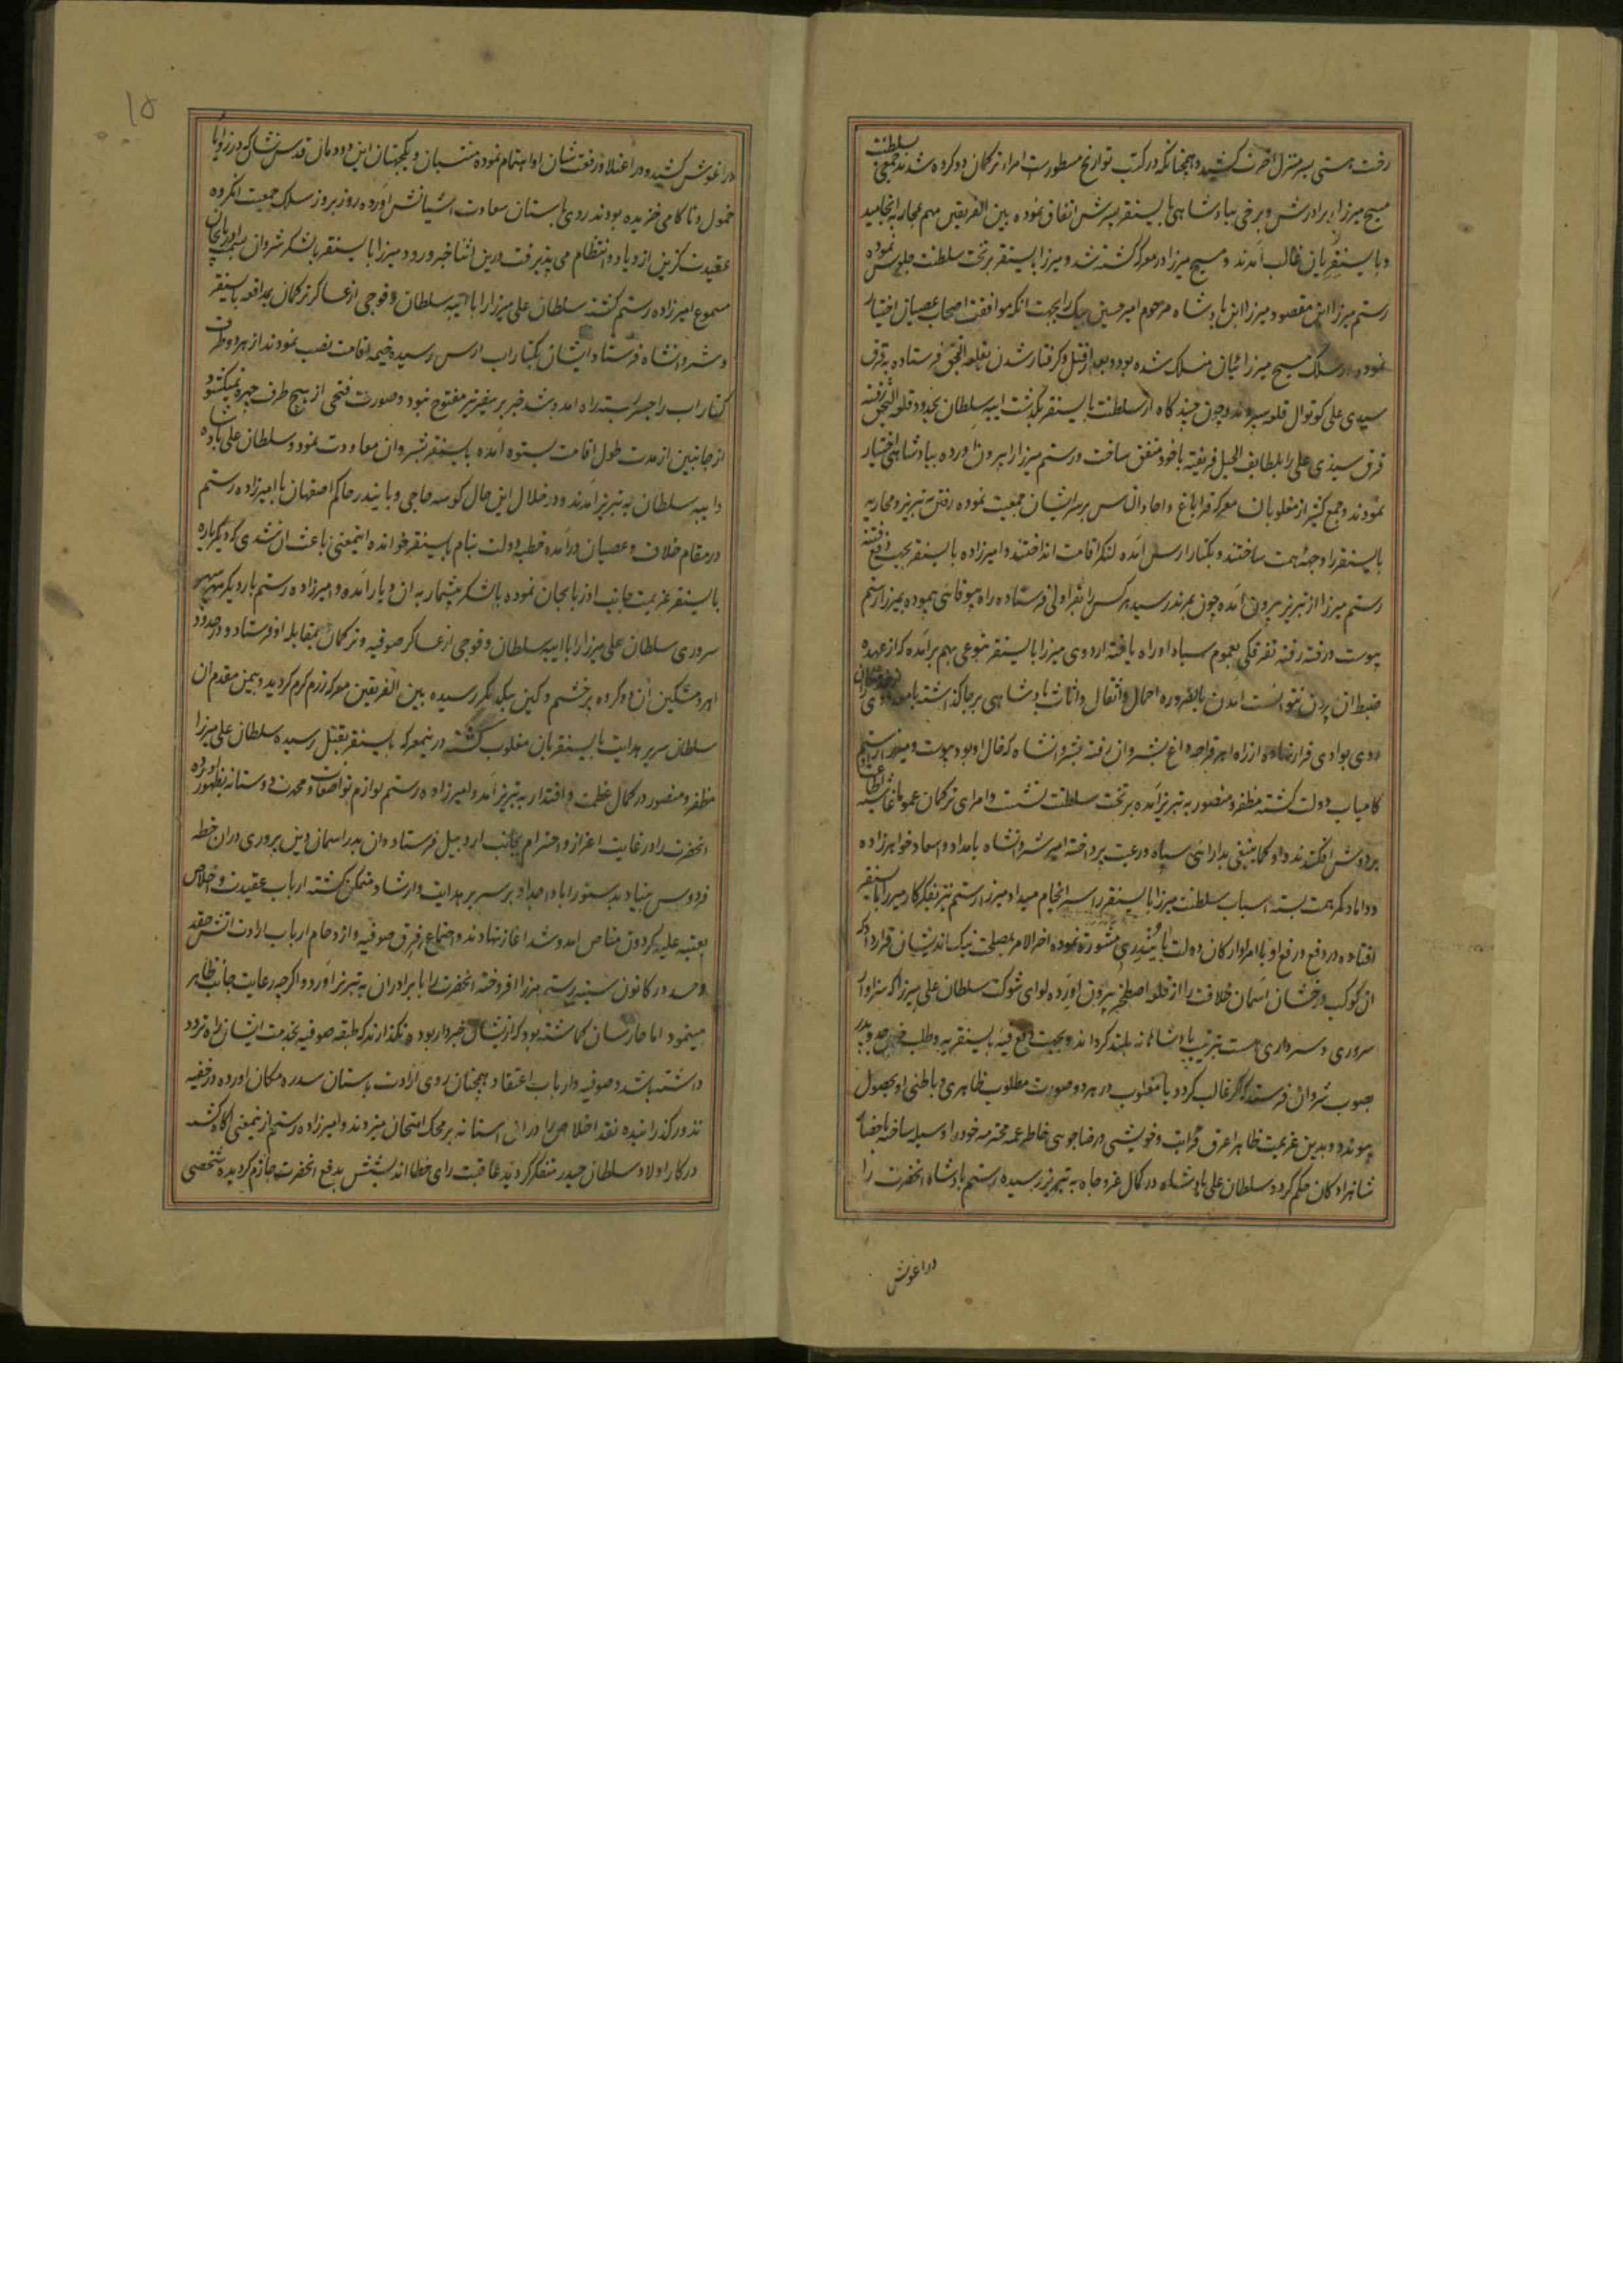 رخت هستی بسر منزل اخرت کشید و همچنانکه در کتب تواریخ مسطورست امراء ترکمان دو کروه شدند جمعی سلطنت
مسیح میرزا برادرش و برخی بپادشاهی بایسنقر پسرش اتفاق نموده بین الفریقین مهم بمحاربه انجامید
و بایسنقریان غالب آمدند و مسیح میرزا در معرکه کشته شد و میرزا بایسنقر بر تخت سلطنت جلوس نموده
رستم میرزا ابن مقصود میرزا ابن پادشاه مرحوم امیر حسین بیک را بجهت انکه موافقت اصحاب عصیان اختیار
نموده در سلک مسیح میرزائیان منسلک شده بود و بعد از قتل و کرفتار شدن بقلعه النجق فرستاده به قرق
سیدی علی کوتوال قلعه سپردند و چون چند کاه از سلطنت بایسنقر بکذشت ایبه سلطان بحدود قلعه النجق رفته
قرق سیدی علی را بلطایف الحیل فریفته با خود متفق ساخت و رستم میرزا را بیرون اورده بپادشاهی اختیار
نمودند و جمع کثیر از مغلوبان معرکه قراباغ و احاد الناس بر سر ایشان جمعیت نموده رفتن به تبریز و محاربه
بایسنقر را وجهه همت ساختند و بکنار ارس آمده لنکر اقامت انداختند و امیرزاده بایسنقر بجهت دفع فتنه
رستم میرزا از تبریز بیرون آمده چون بمرند رسید هر کس را بقراولی فرستاده راه بیوفائی پیموده بمیرزا رستم
پیوست و رفته رفته تفرقکی بعموم سپاه او راه یافته اردوی میرزا بایسنقر بنوعی بهم برآمد که از عهده
ضبط ان بیرون نتوانست امدن بالضروره احمال و اثقال و اثاث پادشاهی بر جا کذاشته با معدودی
روی بوادی فرار نهاده از راه اهر و قراجه داغ بشروان رفته بشروانشاه که خال او بود پیوست و میرزا رستم
کامیاب دولت کشته مظفر و منصور به تبریز آمده بر تخت سلطنت نشست و امرای ترکمان عموما غاشیه اطاعتش
بر دوش افکندند و او کما ینبغی بدارائی سپاه و رعیت پرداخته امیر شروانشاه بامداد و اسعاد خواهرزاده
و داماد کمر همت بسته اسباب سلطنت میرزا بایسنقر را سرانجام میداد میرزا رستم نیز بفکر کار میرزا بایسنقر
افتاده در دفع و رفع او با امرا و ارکان دولت بایندری مشورت نموده اخر الامر بمصلحت نیک اندیشان قرار داد که
ان کوکب درخشان آسمان خلافت را از قلعه اصطخر بیرون آورده لوای شوکت سلطان علی میرزا که سزاوار
سروری و سرداری است بترتیب پادشاهانه بلند کرداند و بجهت دفع فتنه بایسنقریه و طلب خون جد و پدر
بصوب شروان فرستد که اکر غالب کردد یا مغلوب در هر دو صورت مطلوب ظاهری و باطنی او بحصول
پیوندد و بدین عزیمت ظاهرا عرق قرابت و خویشی و رضاجوئی خاطر عمه محترمه خود را وسیله ساخته باحضار
شاهزادکان حکم کرد و سلطان علی پادشاه در کمال عز و جاه به تبریز رسیده رستم پادشاه انحضرت را
در اغوش
۱۵
در اغوش کشید و در اعتلاء و رفعت شان او اهتمام نموده منتسبان و یکجهتان این دودمان قدس نشان که در زوایا
خمول و ناکامی خزیده بودند روی باستان سعادت آشیانش آورده روز بروز سلک جمعیت انکروه
عقیدت کزین ازدیاد و انتظام می پذیرفت درین اثنا خبر ورود میرزا بایسنقر با لشکر شروان بسمت اذربایجان
مسموع امیرزاده رستم کشته سلطان علی میرزا را با ایبه سلطان و فوجی از عساکر ترکمان بمدافعه بایسنقر
و شروانشاه فرستاد ایشان بکنار اب ارس رسیده خیمه اقامت نصب نمودند از هر دو طرف
کنار اب را جسر بسته راه امد و شد خبر بر سفیر تیر مفتوح نبود و صورت فتحی از هیچ طرف چهره نمیکشود
از جانبین از مدت طول اقامت بستوه آمده بایسنقر بشروان معاودت نمود و سلطان علی پادشاه
و ایبه سلطان به تبریز آمدند و در خلال این حال کوسه حاجی و بایندر حاکم اصفهان با امیرزاده رستم
در مقام خلاف و عصیان درآمده خطبه دولت بنام بایسنقر خوانده اینمعنی باعث ان شد که دیکر باره
بایسنقر عزیمت جانب اذربایجان نموده با لشکر بیشمار به ان دیار آمده و میرزاده رستم بار دیکر سپهر
سروری سلطان علی میرزا را با ایبه سلطان و فوجی از عساکر صوفیه و ترکمان بمقابله او فرستاد و در حدود
اهر و مشکین ان دو کروه پر خشم و کین بیکدیکر رسیده بین الفریقین معرکه رزم کرم کردید و بیمن مقدم ان
سلطان سریر هدایت بایسنقریان مغلوب کشته در نیمعرکه بایسنقر بقتل رسیده سلطان علی میرزا
مظفر و منصور در کمال عظمت و اقتدار به تبریز آمد و امیرزاده رستم لوازم تواضعات و محمدت دوستانه بظهور آورده
انحضرت را در غایت اعزاز و احترام بجانب اردبیل فرستاد و ان بدر اسمان دین پروری در ان خطه
فردوس بنیاد بدستور اباء و اجداد بر سریر هدایت و ارشاد متمکن کشته ارباب عقیدت و اخلاص
بعتبه علیه کردون مناص امد و شد اغاز نهادند و اجتماع فرق صوفیه و ازدحام ارباب ارادت اتش حقد
و حسد در کانون سینه رستم میرزا افروخته انحضرت را با برادران به تبریز آورد و اکرچه رعایت جانب ظاهر
مینمود اما حارسان کماشته بود که از ایشان خبردار بوده نکذارند که طبقه صوفیه بخدمت ایشان راه تردد
داشته باشد و صوفیه و ارباب اعتقاد همچنان روی ارادت باستان سدره مکان آورده در خفیه
نذور کذرانیده نقد اخلاص را در ان استانه بر محک امتحان میزدند و امیرزاده رستم از ینمعنی آکاه کشته
در کار اولاد سلطان حیدر متفکر کردید عاقبت رای خطا اندیشش بدفع انحضرت جازم کردیده شخصی